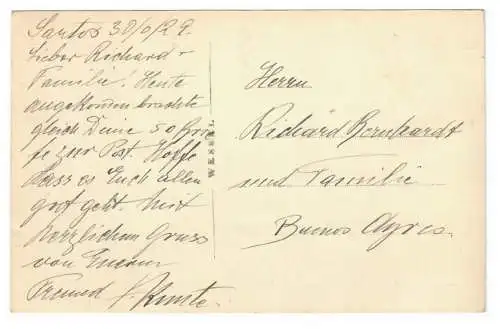 Santos 30/0/29.
Lieber Richard &
Familie! Heute
angekommen brachte
gleich Deine 50 Brie
fe zur Post. Hoffe
dass es Euch allen
gut geht. Mit
herzlichem Gruss
von Eurem
Freund
WESSEL
Herrn
Richard Bernhardt
und Familie
Buenos Ayres.